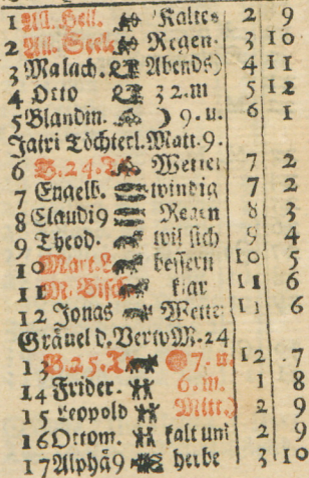 1 All. Heil. Kaltes 2 9
2 All. Seele Regen. 3 10
3 Malach. Abends) 4 11
4 Otto 3 2. m 5 12
5 Blandin. ☽ 9. u. 6 1
Jairi Töchterl. Matt. 9.
6 B. 24. Tr. Wetter 7 2
7 Engelb. windig 7 2
8 Claudi9 Regen 8 3
9 Theod. wil sich 9 4
10 Mart. L. bessern 10 5
11 M. Bisch. klar 11 6
12 Jonas Wetter 11 6
Gräuel d. Verw M. 24
13 B. 25. Tr. 7. u. 12 7
14 Frider. 6. m. 1 8
15 Leopold Mitt.) 2 9
16 Ottom. kalt und 2 9
17 Alphä9 herbe 3 10